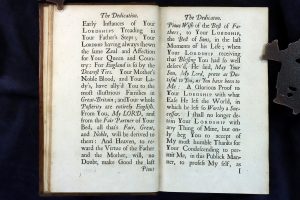 The Dedication.
Early Instances of Your
LORDSHIPS Treading in
Your Father's Steps; Your
LORDSHIP having always shown
the same Zeal and Affection
for Your Queen and Coun-
try: For England is by the
Dearest Ties. Your Mother's
Noble Blood, and Your La-
dy's, have ally'd You to the
most illustrious Families in
Great-Britain; and our whole
Posterity are entirely English.
From You, My LORD, and
from the Fair Partner of Your
Bed, all that's Fair, Great,
and Noble, will be derived to
them: And Heaven, to re-
ward the Virtue of the Father
and the Mother, will, no
Doubt, make Good the last
Pious
The Dedication.
Pious Wish of the Best of Fa-
thers, to Your LORDSHIP,
the Best of Sons, in the last
Moments of his Life; when
Your LORDSHIP receiving
that Blessing You had so well
deserv'd, He said, May Your
Son, My Lord, prove as Du-
tiful to You, as You have been to
Me: A Glorious Proof to
Your LORDSHIP with what
Ease He left the World, in
which he left so Worthy a Suc-
cessor. I shall no longer de-
tain Your LORDSHIP with
any Thing of Mine, but on-
ly beg You to accept of
My most humble Thanks for
Your Condescending to per-
mit Me, in this Publick Man-
ner, to profess My self, as
I